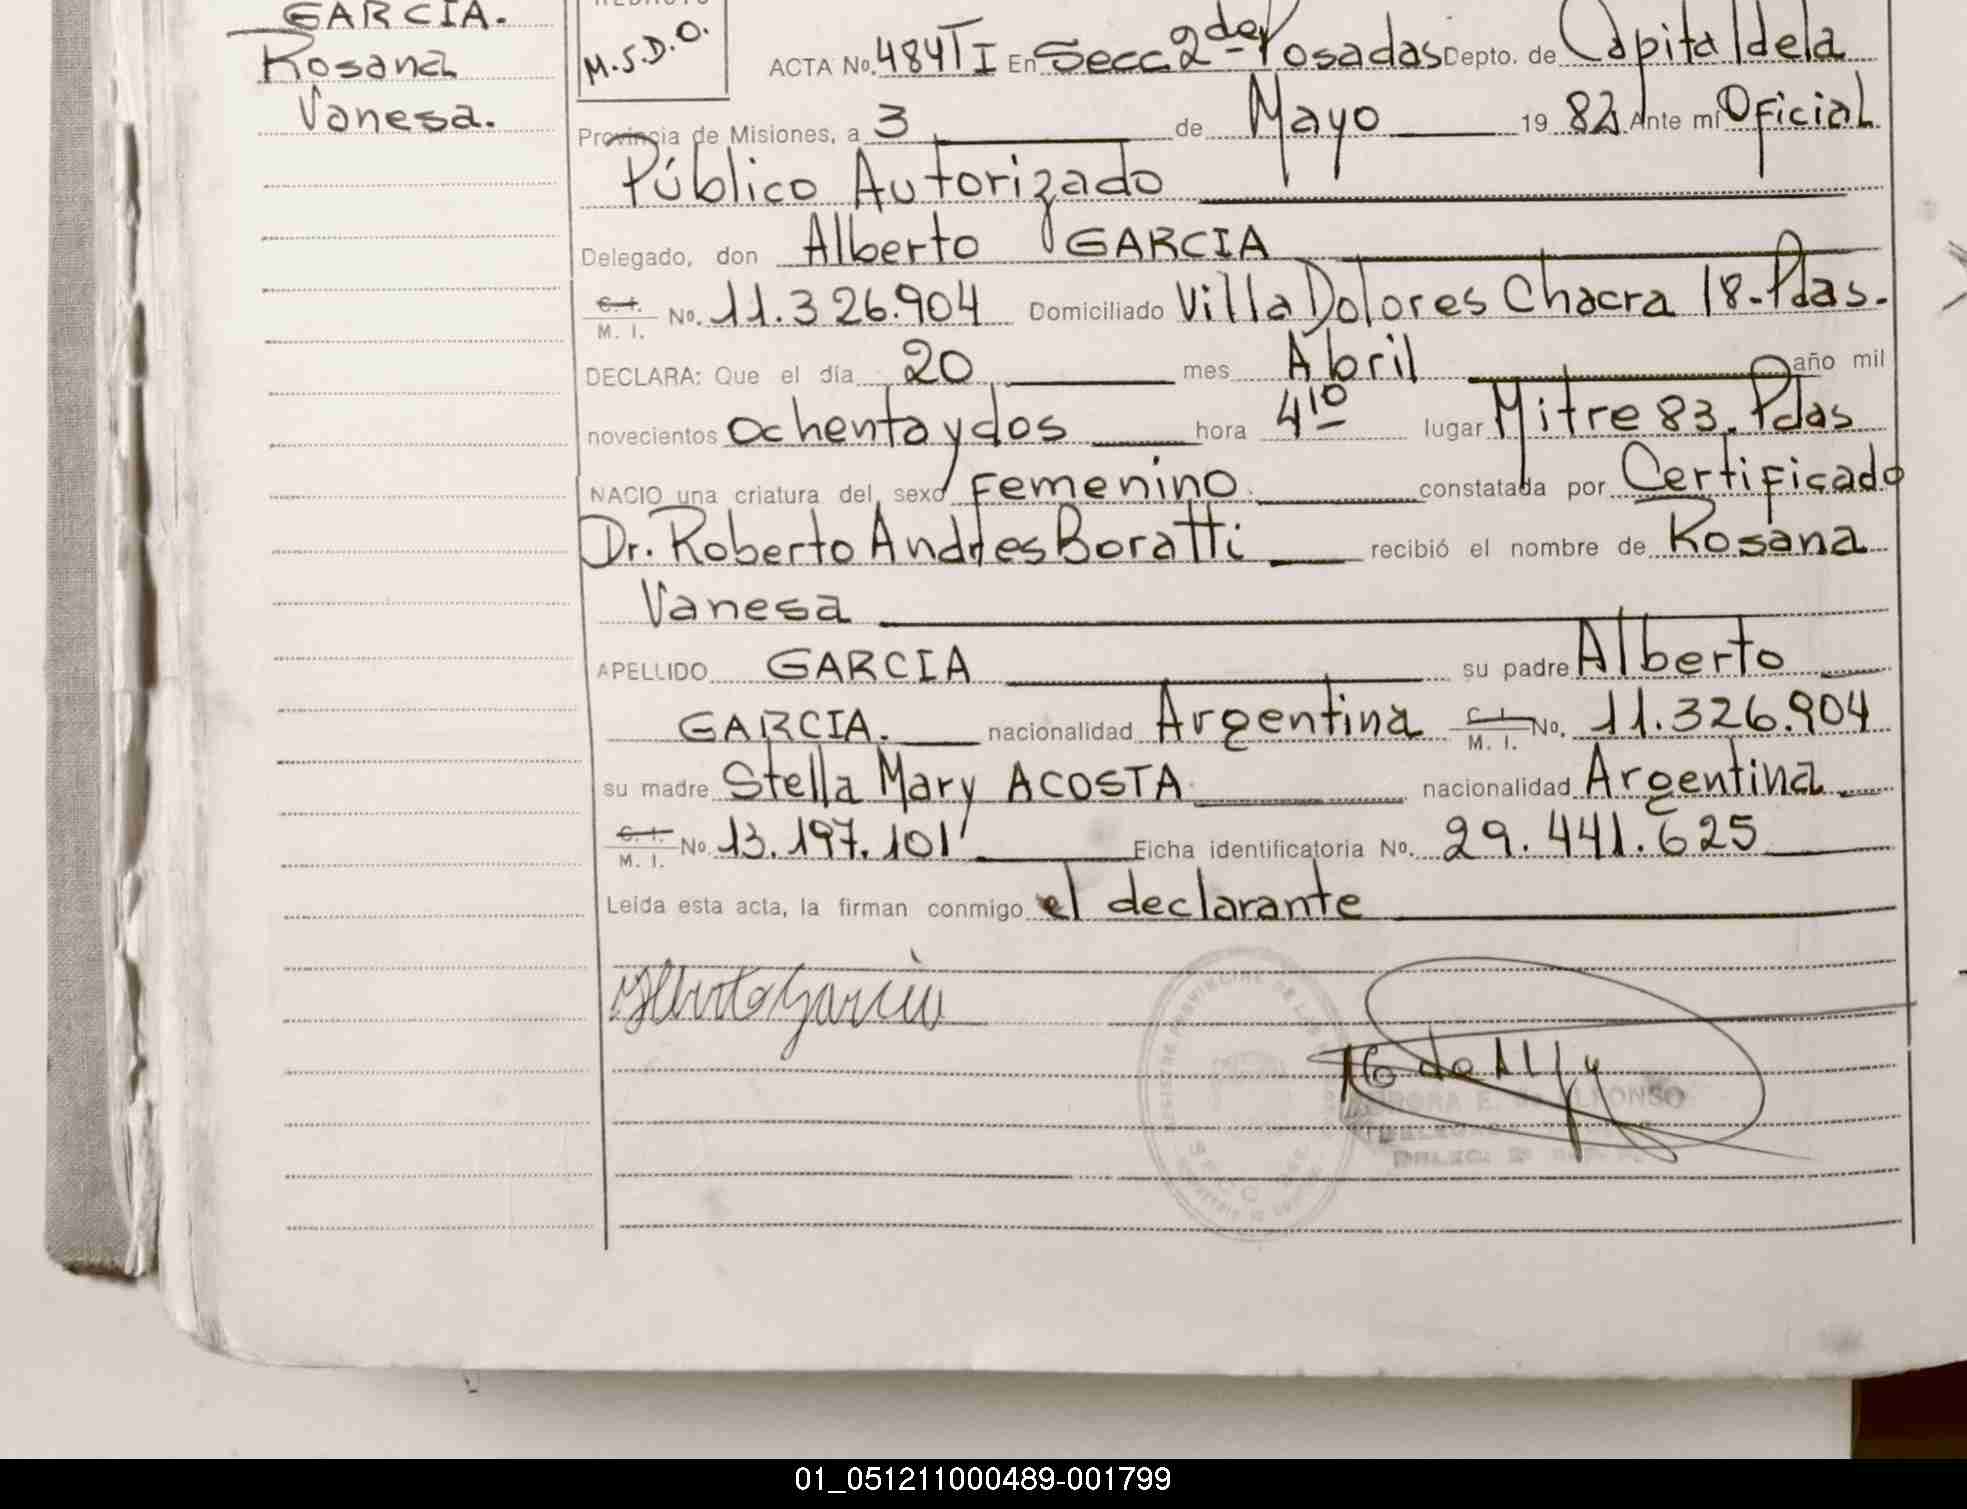 GARCIA.
Rosana
Vanesa.
M.S.D.O.
ACTA No. 484 T I En Secc 2da de Posadas Depto. de Capital de la
Provincia de Misiones, a 3 de Mayo 19 82 Ante mi Oficial
Público Autorizado
Delegado, don Alberto GARCIA
C. I. / M. I. No. 11.326.904 Domiciliado Villa Dolores Chacra 18. Pdas.
DECLARA: Que el día 20 mes Abril año mil
novecientos ochenta y dos hora 4 10 lugar Mitre 83. Pdas
NACIO una criatura del sexo Femenino constatada por Certificado
Dr. Roberto Andres Boratti recibió el nombre de Rosana
Vanesa
APELLIDO GARCIA su padre Alberto
GARCIA. nacionalidad Argentina C. I. / M. I. No. 11.326.904
su madre Stella Mary ACOSTA nacionalidad Argentina
C. I. / M. I. No. 13.197.101 Ficha identificatoria No. 29.441.625
Leida esta acta, la firman conmigo el declarante
Alberto Garcia
AURORA E. de ALFONSO
01_051211000489-001799